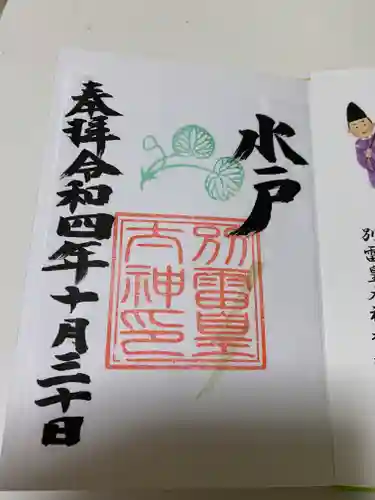 水戸
別雷皇
大神印
奉拝令和四年十月三十日
別雷皇大神